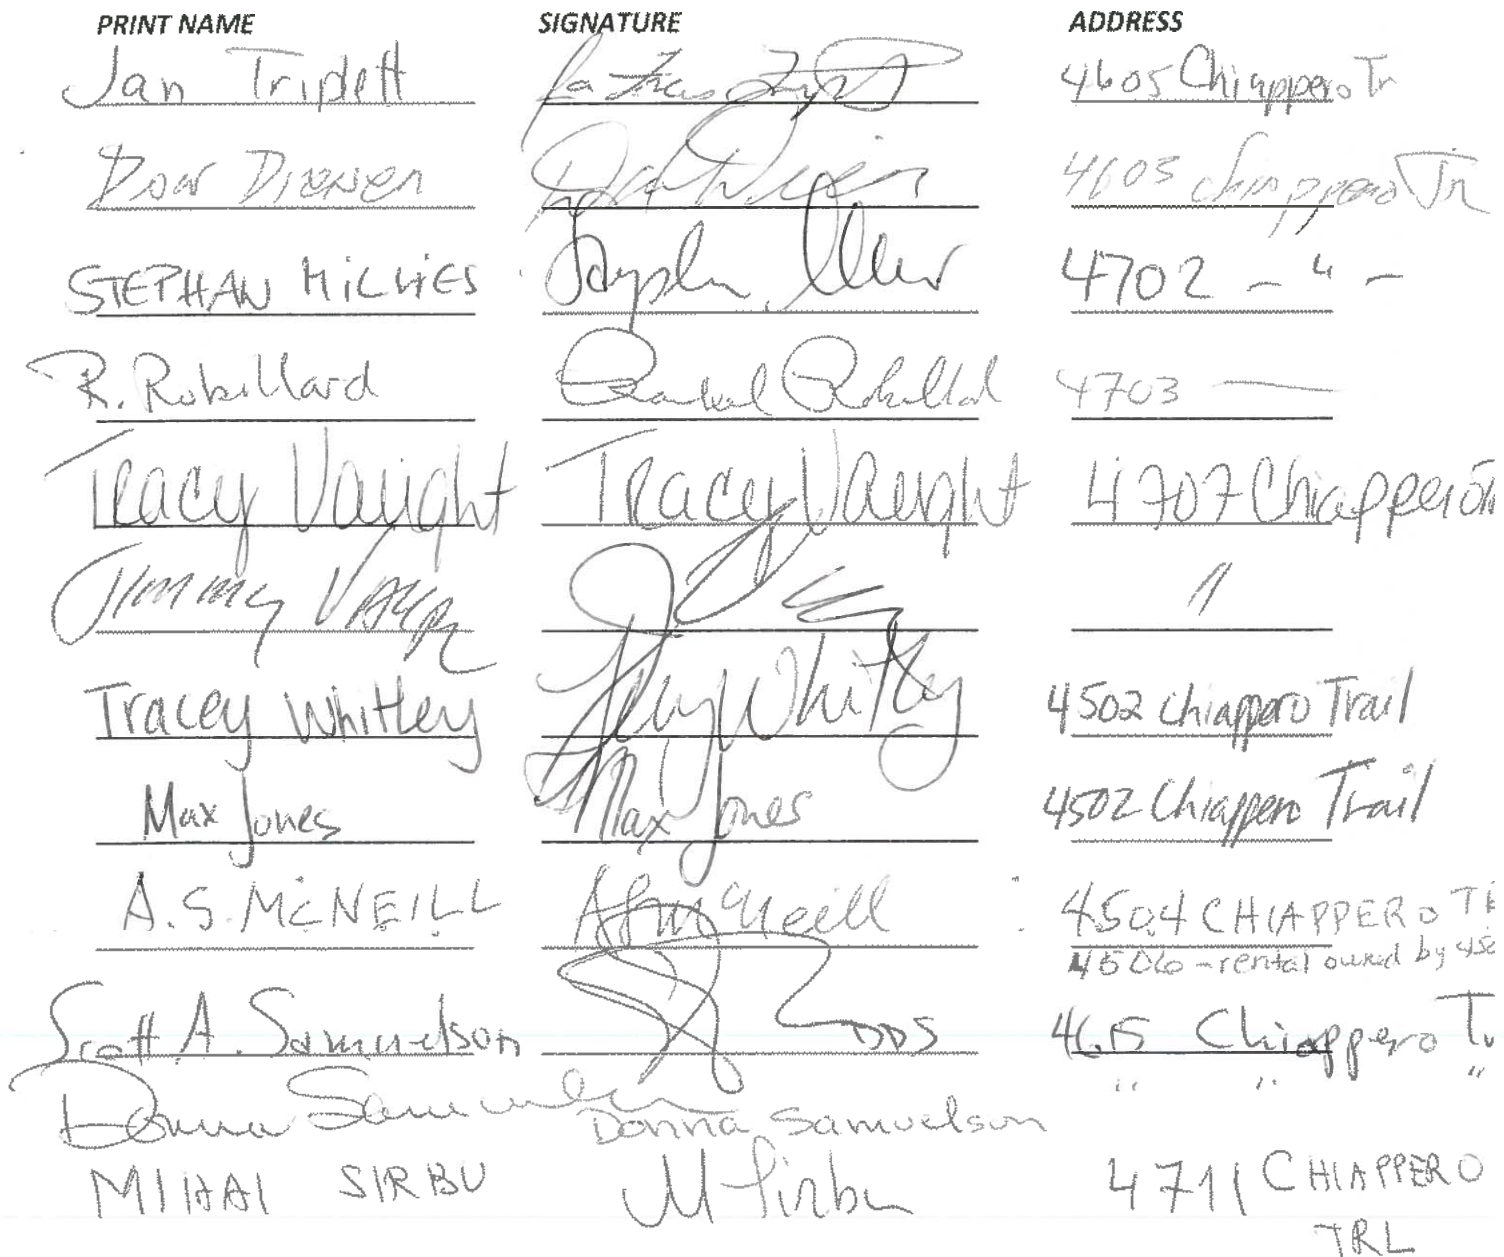 PRINT NAME SIGNATURE ADDRESS
Jan Triplett 4605 Chiappero Tr
Diener 4605 Chiappero Tr
STEPHAN 4702 - " -
R. Robillard Robillard 4703 —
Tracy Vaught Tracy Vaught 4707 Chiappero
Jimmy "
Tracey Whitley Whitley 4502 Chiappero Trail
Max Jones Max Jones 4502 Chiappero Trail
A.S. MCNEILL McNeill 4504 CHIAPPERO
4506 - rental owned by
Scott A. Samuelson DDS Chiappero
" " "
Donna Samuelson Donna Samuelson
MIHAI SIRBU M Sirbu 4711 CHIAPPERO
TRL